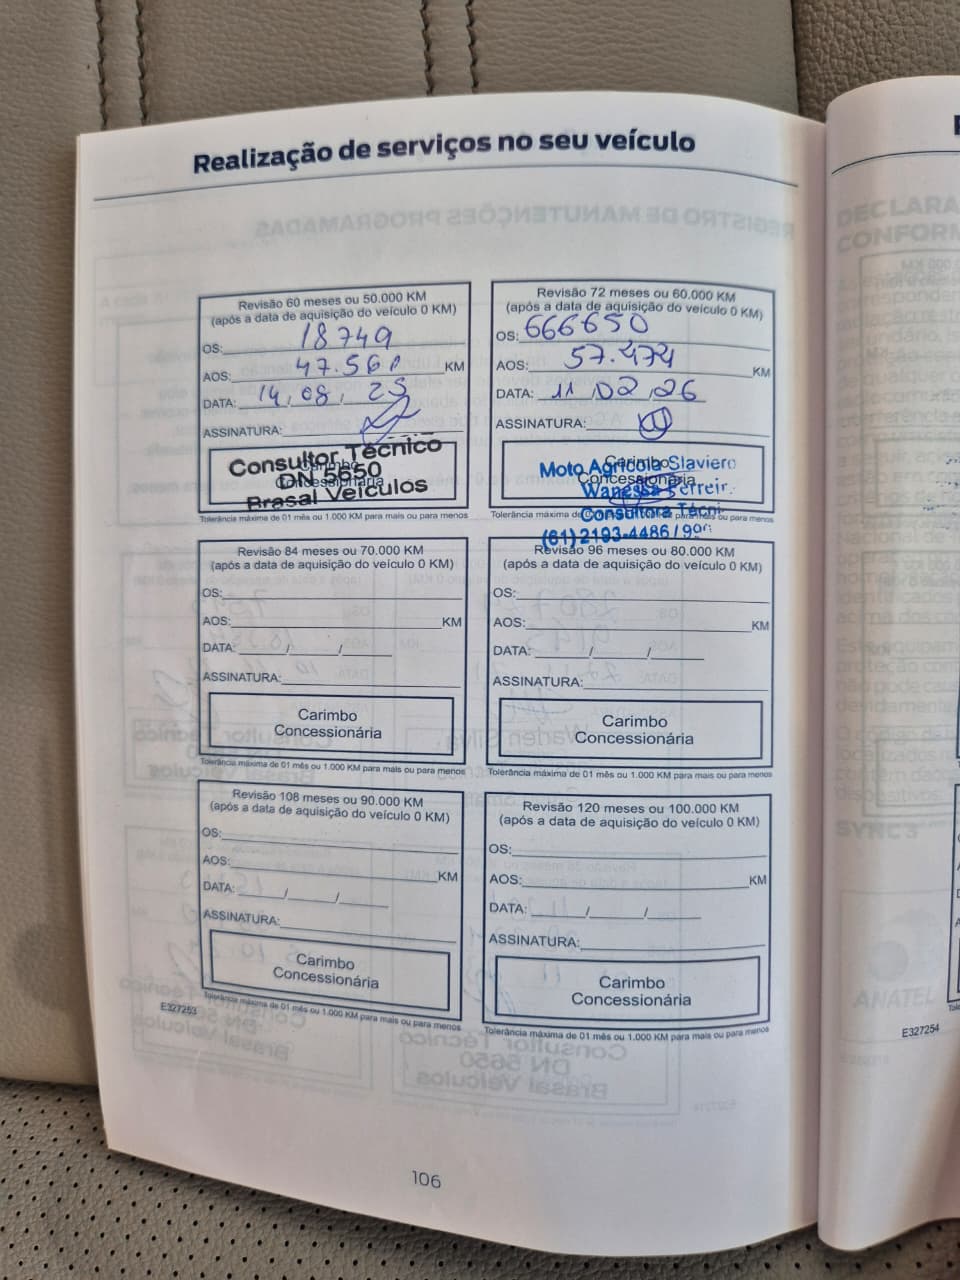 Realização de serviços no seu veículo
Revisão 60 meses ou 50.000 KM
(após a data de aquisição do veículo 0 KM)
OS: 18749
AOS: 47.560 KM
DATA: 14, 08, 25
ASSINATURA:
Carimbo
Concessionária
Consultor Técnico
DN 5650
Brasal Veículos
Tolerância máxima de 01 mês ou 1.000 KM para mais ou para menos
Revisão 72 meses ou 60.000 KM
(após a data de aquisição do veículo 0 KM)
OS: 666650
AOS: 57.474 KM
DATA: 11 02 26
ASSINATURA:
Carimbo
Concessionária
Moto Agrícola Slaviero
Wanessa Ferreir
Consultora Técni
(61) 2193-4486 / 99
Tolerância máxima de 01 mês ou 1.000 KM para mais ou para menos
Revisão 84 meses ou 70.000 KM
(após a data de aquisição do veículo 0 KM)
OS:
AOS: KM
DATA: / /
ASSINATURA:
Carimbo
Concessionária
Tolerância máxima de 01 mês ou 1.000 KM para mais ou para menos
Revisão 96 meses ou 80.000 KM
(após a data de aquisição do veículo 0 KM)
OS:
AOS: KM
DATA: / /
ASSINATURA:
Carimbo
Concessionária
Tolerância máxima de 01 mês ou 1.000 KM para mais ou para menos
Revisão 108 meses ou 90.000 KM
(após a data de aquisição do veículo 0 KM)
OS:
AOS: KM
DATA: / /
ASSINATURA:
Carimbo
Concessionária
Tolerância máxima de 01 mês ou 1.000 KM para mais ou para menos
E327253
Revisão 120 meses ou 100.000 KM
(após a data de aquisição do veículo 0 KM)
OS:
AOS: KM
DATA: / /
ASSINATURA:
Carimbo
Concessionária
Tolerância máxima de 01 mês ou 1.000 KM para mais ou para menos
106
E327254